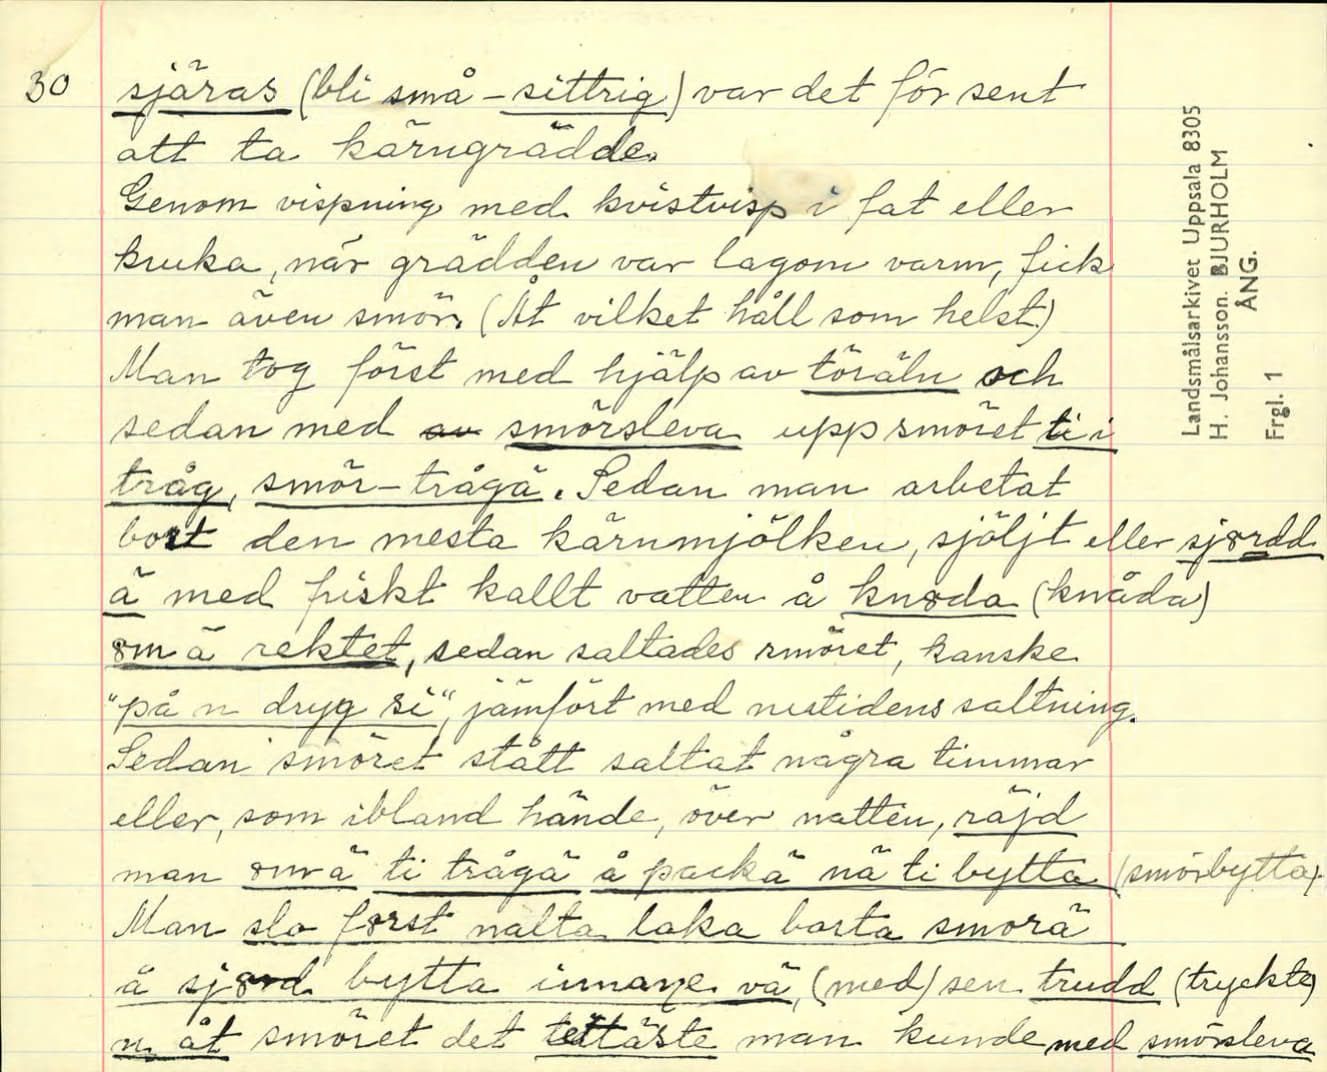 30 sjäras (bli små-sittrig) var det för sent
att ta kärngrädde.
Genom vispning med kvistvisp i fat eller
kruka, när grädden var lagom varm, fick
man även smör. (Åt vilket håll som helst)
Man tog först med hjälp av töräln och
sedan med av smörsleva upp smöret ti i
tråg, smör-trågä. Sedan man arbetat
bort den mesta kärnmjölken, sjöljt eller sjørdd
ä med friskt kallt vatten å knøda (knåda)
øm ä rektet, sedan saltades smöret, kanske
"på n dryg si", jämfört med nutidens saltning.
Sedan smöret stått saltat några timmar
eller, som ibland hände, över natten, räjd
man øm ä ti trågä å packä nä ti bytta (smörbytta).
Man slo først nalta laka borta smorä
å sjørd bytta innane vä, (med) sen trudd (tryckte)
n åt smöret det tettäste man kunde med smörsleva
Landsmålsarkivet Uppsala 8305
H. Johansson. BJURHOLM
ÅNG.
Frgl. 1